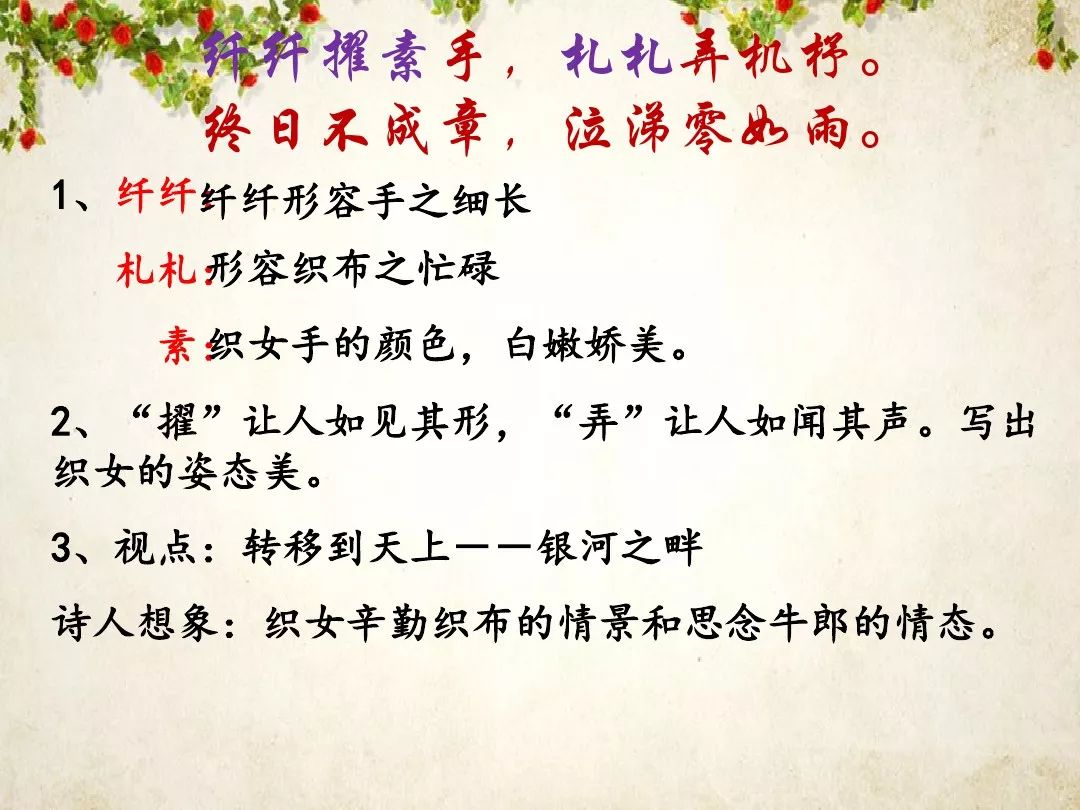 纤纤擢素手，札札弄机杼。
终日不成章，泣涕零如雨。
1、纤纤：纤纤形容手之细长
札札：形容织布之忙碌
素：织女手的颜色，白嫩娇美。
2、“擢”让人如见其形，“弄”让人如闻其声。写出
织女的姿态美。
3、视点：转移到天上——银河之畔
诗人想象：织女辛勤织布的情景和思念牛郎的情态。